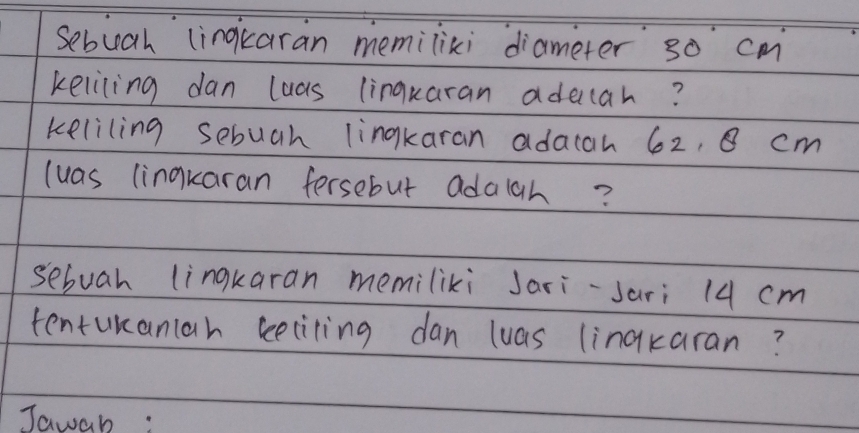 Sebuah lingkaran memiliki diameter 30 cm
keliling dan luas lingkaran adalah ?
keliling sebuah lingkaran adalah 62,8 cm
luas lingkaran tersebut adalah ?
sebuah lingkaran memiliki Jari-Jari 14 cm
tentukanlah keliling dan luas lingkaran ?
Jawab :